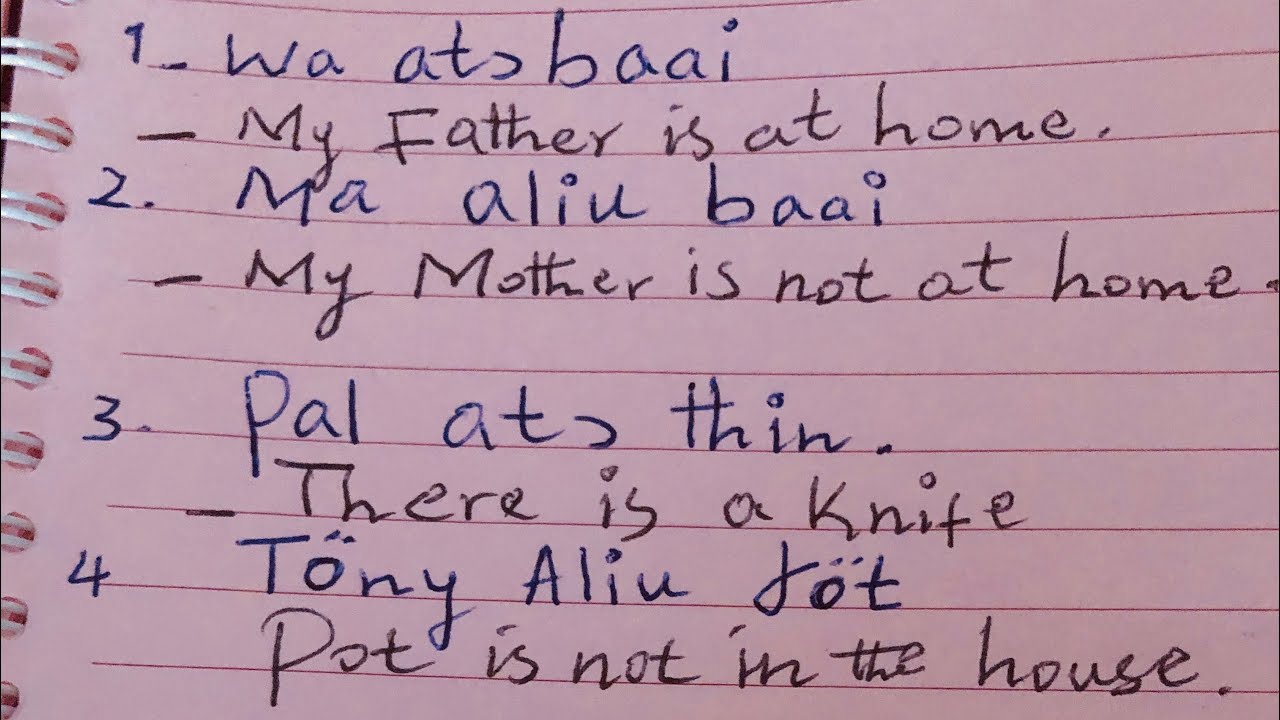 1- Wa atɔ baai
- My Father is at home.
2. Ma aliu baai
- My Mother is not at home.
3. Pal atɔ thin.
- There is a Knife
4 Töny Aliu ɣöt
Pot is not in the house.